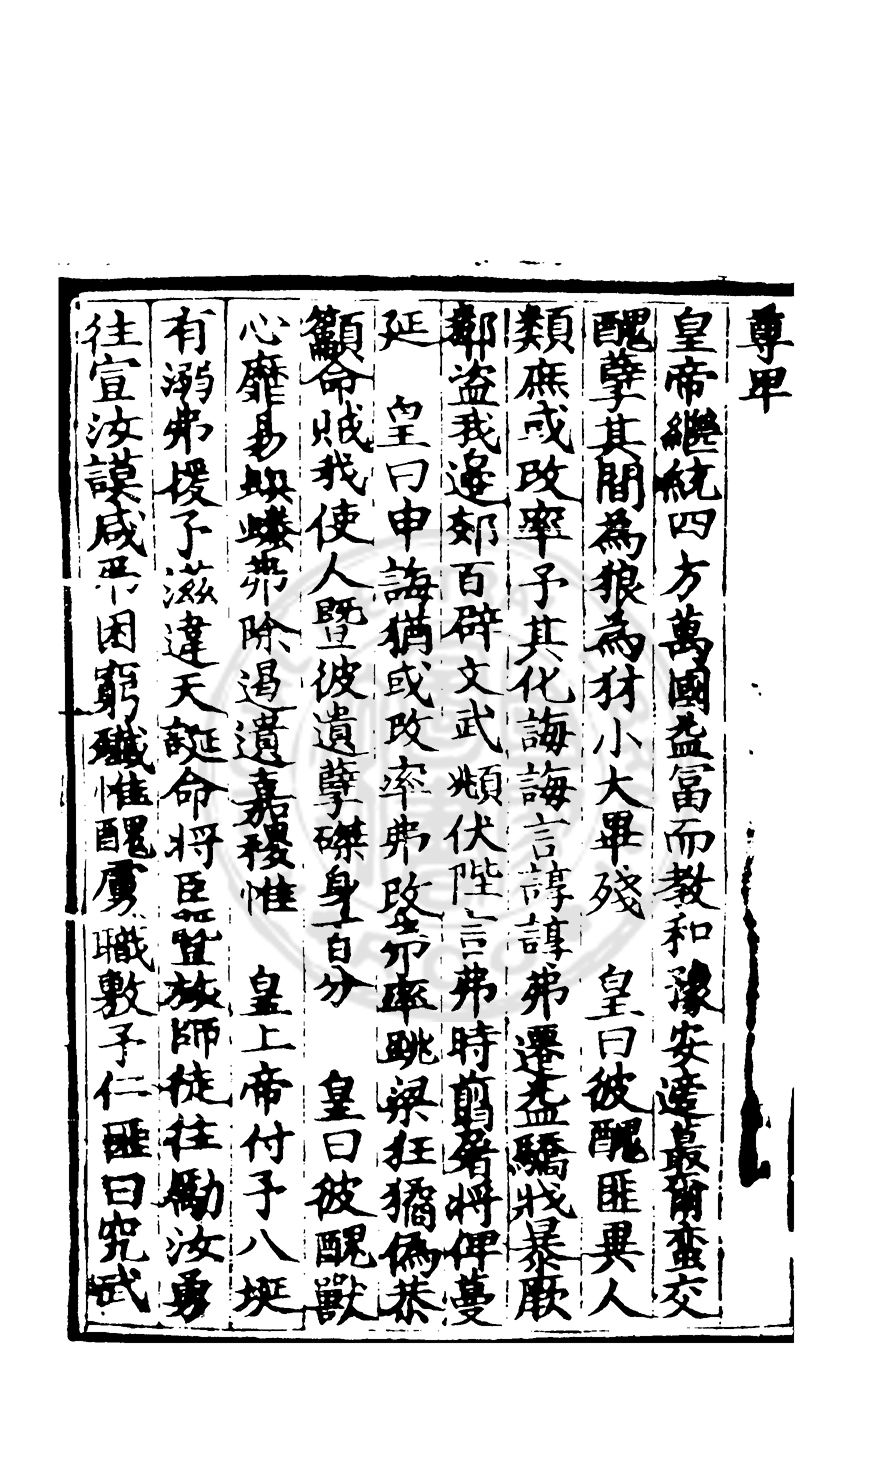 尊卑
皇帝繼統四方萬國益富而教和豫安遠蕞爾蛮交
醜孽其間為狼為犲小大畢殘 皇曰彼醜匪異人
類庶或改率予其化誨誨言諄諄弗遷益驕戕暴厥
鄰盗我邊郊百辟文武頫伏陛言弗時翦屠將俾蔓
延 皇曰申誨猶或改率弗改率跳梁狂獝偽恭
籲命賊我使人暨彼遺孽磔身百分 皇曰彼醜獸
心靡易蜈蟻弗除遏遺嘉稷惟 皇上帝付予八埏
有溺弗援予滋違天誕命将臣暨旅師徒往勵汝勇
往宣汝謨咸弔困窮殲惟醜虜職敷予仁匪曰究武